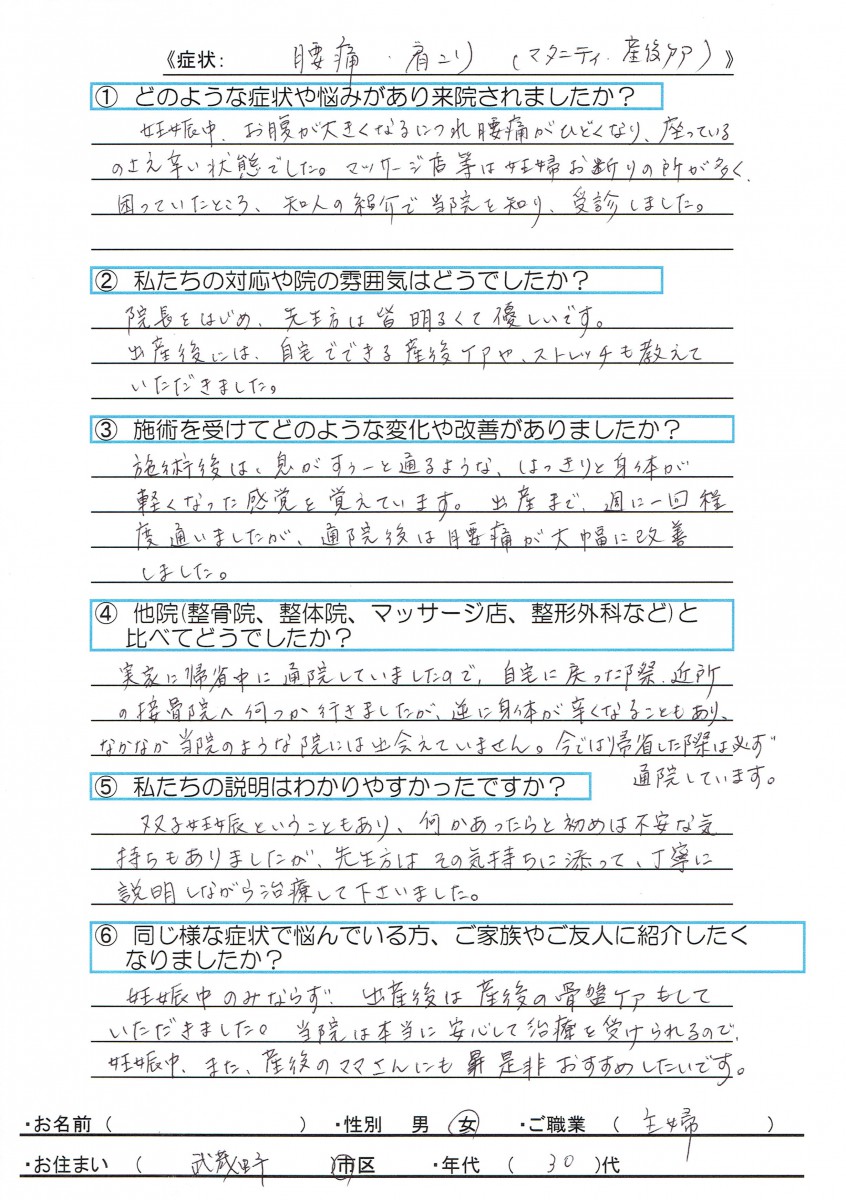 《症状: 腰痛・肩こり (マタニティ・産後ケア) 》
① どのような症状や悩みがあり来院されましたか?
妊娠中、お腹が大きくなるにつれ腰痛がひどくなり、座っている
のさえ辛い状態でした。マッサージ店等は妊婦お断りの所が多く、
困っていたところ、知人の紹介で当院を知り、受診しました。
② 私たちの対応や院の雰囲気はどうでしたか?
院長をはじめ、先生方は皆明るくて優しいです。
出産後には、自宅でできる産後ケアや、ストレッチも教えて
いただきました。
③ 施術を受けてどのような変化や改善がありましたか?
施術後は、息がすぅーと通るような、はっきりと身体が
軽くなった感覚を覚えています。出産まで、週に一回程
度通いましたが、通院後は腰痛が大幅に改善
しました。
④ 他院(整骨院、整体院、マッサージ店、整形外科など)と
比べてどうでしたか?
実家に帰省中に通院していましたので、自宅に戻った際、近所
の接骨院へ何つか行きましたが、逆に身体が辛くなることもあり、
なかなか当院のような院には出会えていません。今では帰省した際は必ず
通院しています。
⑤ 私たちの説明はわかりやすかったですか?
双子妊娠ということもあり、何かあったらと初めは不安な気
持ちもありましたが、先生方はその気持ちに添って、丁寧に
説明しながら治療して下さいました。
⑥ 同じ様な症状で悩んでいる方、ご家族やご友人に紹介したく
なりましたか?
妊娠中のみならず、出産後は産後の骨盤ケアもして
いただきました。当院は本当に安心して治療を受けられるので、
妊娠中、また、産後のママさんにも是非おすすめしたいです。
・お名前 ( ) ・性別 男 女 ・ご職業 ( 主婦 )
・お住まい ( 武蔵野 市区 ・年代 ( 30 )代